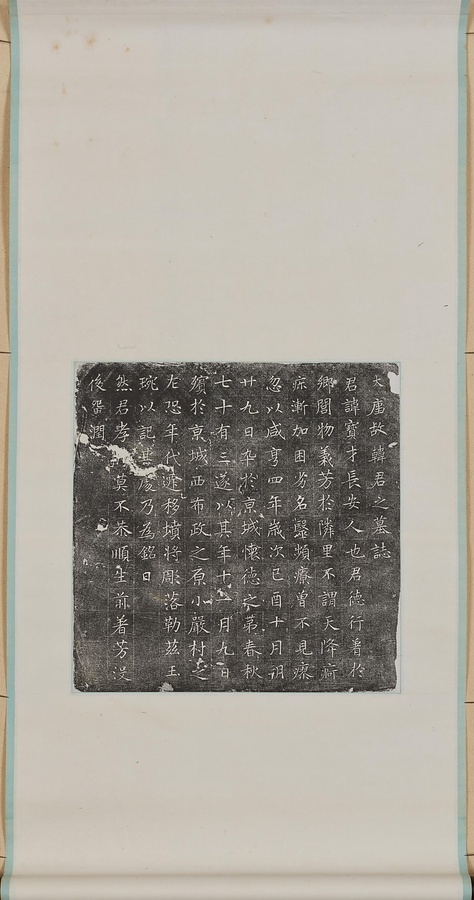 大唐故韓君之墓誌
君諱寶才長安人也君德行著於
鄉閭物義芳於隣里不謂天降痾
疾漸加困劣名醫頻療曾不見瘳
忽以咸亨四年歲次己酉十月朔
廿九日卒於京城懷德之苐春秋
七十有三遂以其年十一月九日
殯於京城西布政之原小嚴村之
左恐年代遷移墳將彫落勒茲玉
琬以記其處乃為銘曰
然君孝莫不恭順生前著芳沒
後留潤